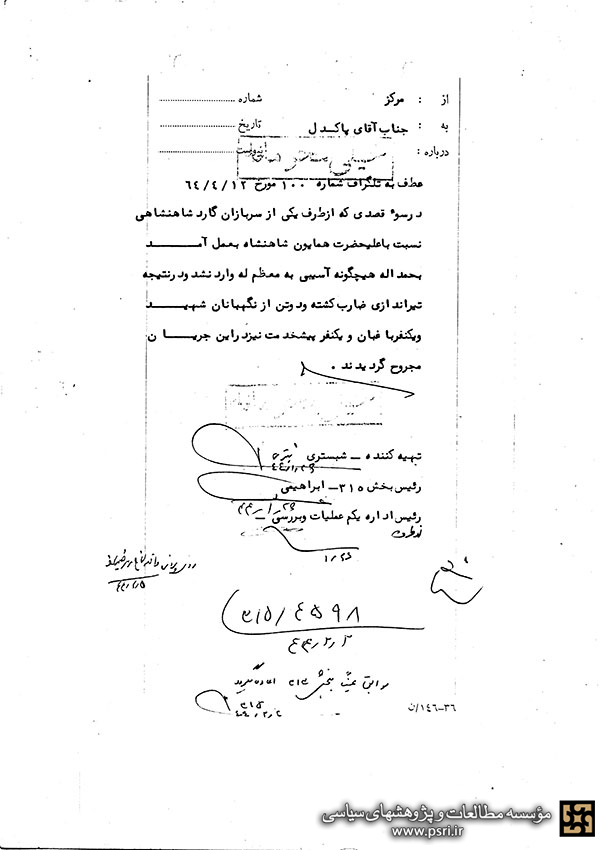 از : مرکز شماره ............
به : جناب آقای پاکدل تاریخ ............
درباره : پیوست
عطف به تلگراف شماره ۱۰۰ مورخ ۶۴/۴/۱۲
در سوء قصدی که ازطرف یکی از سربازان گارد شاهنشاهی
نسبت باعلیحضرت همایون شاهنشاه بعمل آمد
بحمد اله هیچگونه آسیبی به معظم له وارد نشد ودرنتیجه
تیراندازی ضارب کشته ودوتن از نگهبانان شهید
ویکنفر باغبان و یکنفر پیشخدمت نیزدراین جریان
مجروح گردیدند .
تهیه کننده ــ شبستری
رئیس بخش ۳۱۵ــ ابراهیمی
رئیس اداره یکم عملیات وبررسی ــ
۳۱۵/۴۵۹۸
۴۴/۲/۲
۳۱۵
۳۶-۱۴۶/ن
مؤسسه مطالعات و پژوهشهای سیاسی
www.psri.ir